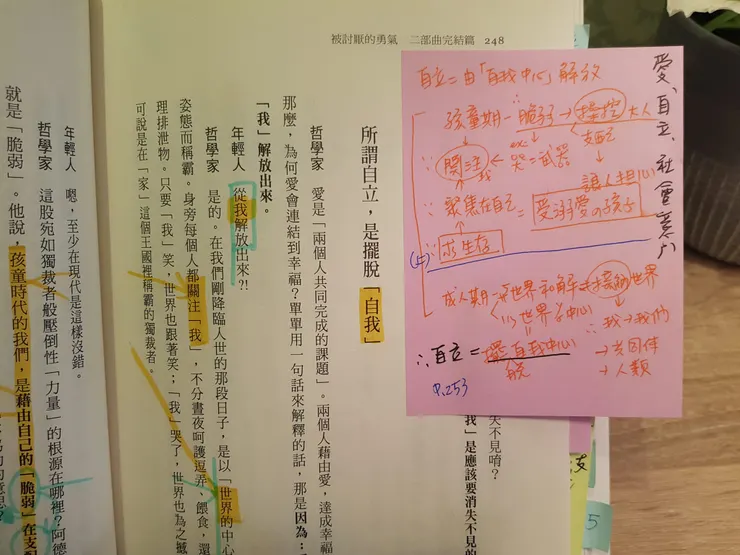 被討厭的勇氣 二部曲完結篇 248
失不見嗎？
我」是應該要消失不見的
所謂自立，是擺脫「自我」
哲學家 愛是「兩個人共同完成的課題」。兩個人藉由愛，達成幸福
那麼，為何愛會連結到幸福？單單用一句話來解釋的話，那是因為：
「我」解放出來。
年輕人 從我解放出來?!
哲學家 是的。在我們剛降臨人世的那段日子，是以「世界的中心
姿態而稱霸。身旁每個人都關注「我」，不分晝夜呵護逗弄、餵食，還
理排泄物。只要「我」笑，世界也跟著笑；「我」哭了，世界也為之撼
可說是在「家」這個王國裡稱霸的獨裁者。
年輕人 嗯，至少在現代是這樣沒錯。
哲學家 這股宛如獨裁者般壓倒性「力量」的根源在哪裡？阿德
就是「脆弱」。他說，孩童時代的我們，是藉由自己的「脆弱」在支配
愛、自立、社會意
自立＝由「自我中心」解放
孩童期－脆弱→操控大人
支配
關注我←哭＝武器
讓人担心
∴聚焦在自己＝受溺愛の孩子
求生存
成人期
世界和解
世界
世界の中心
∴我→我們
→共同体
→人類
∴自立＝擺自我中心
脫
P.253
支
5